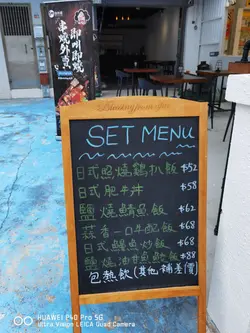 串燒外賣
即叫即燒
Blessing from above
SET MENU
日式照燒鷄扒飯 $52
日式肥牛丼 $58
鹽燒鯖魚飯 $62
蒜香一口牛配飯 $68
日式鰻魚炒飯 $68
鹽燒油甘魚鮫飯 $88
包熱飲(其他補差價)
HUAWEI P40 Pro 5G
Ultra Vision LEICA Quad Camera